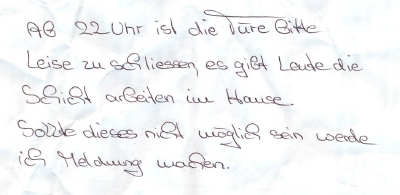 Ab 22 Uhr ist die Türe Bitte
Leise zu schliessen, es gibt Leute die
Schicht arbeiten im Hause.
Sollte dieses nicht möglich sein werde
ich Meldnung machen.